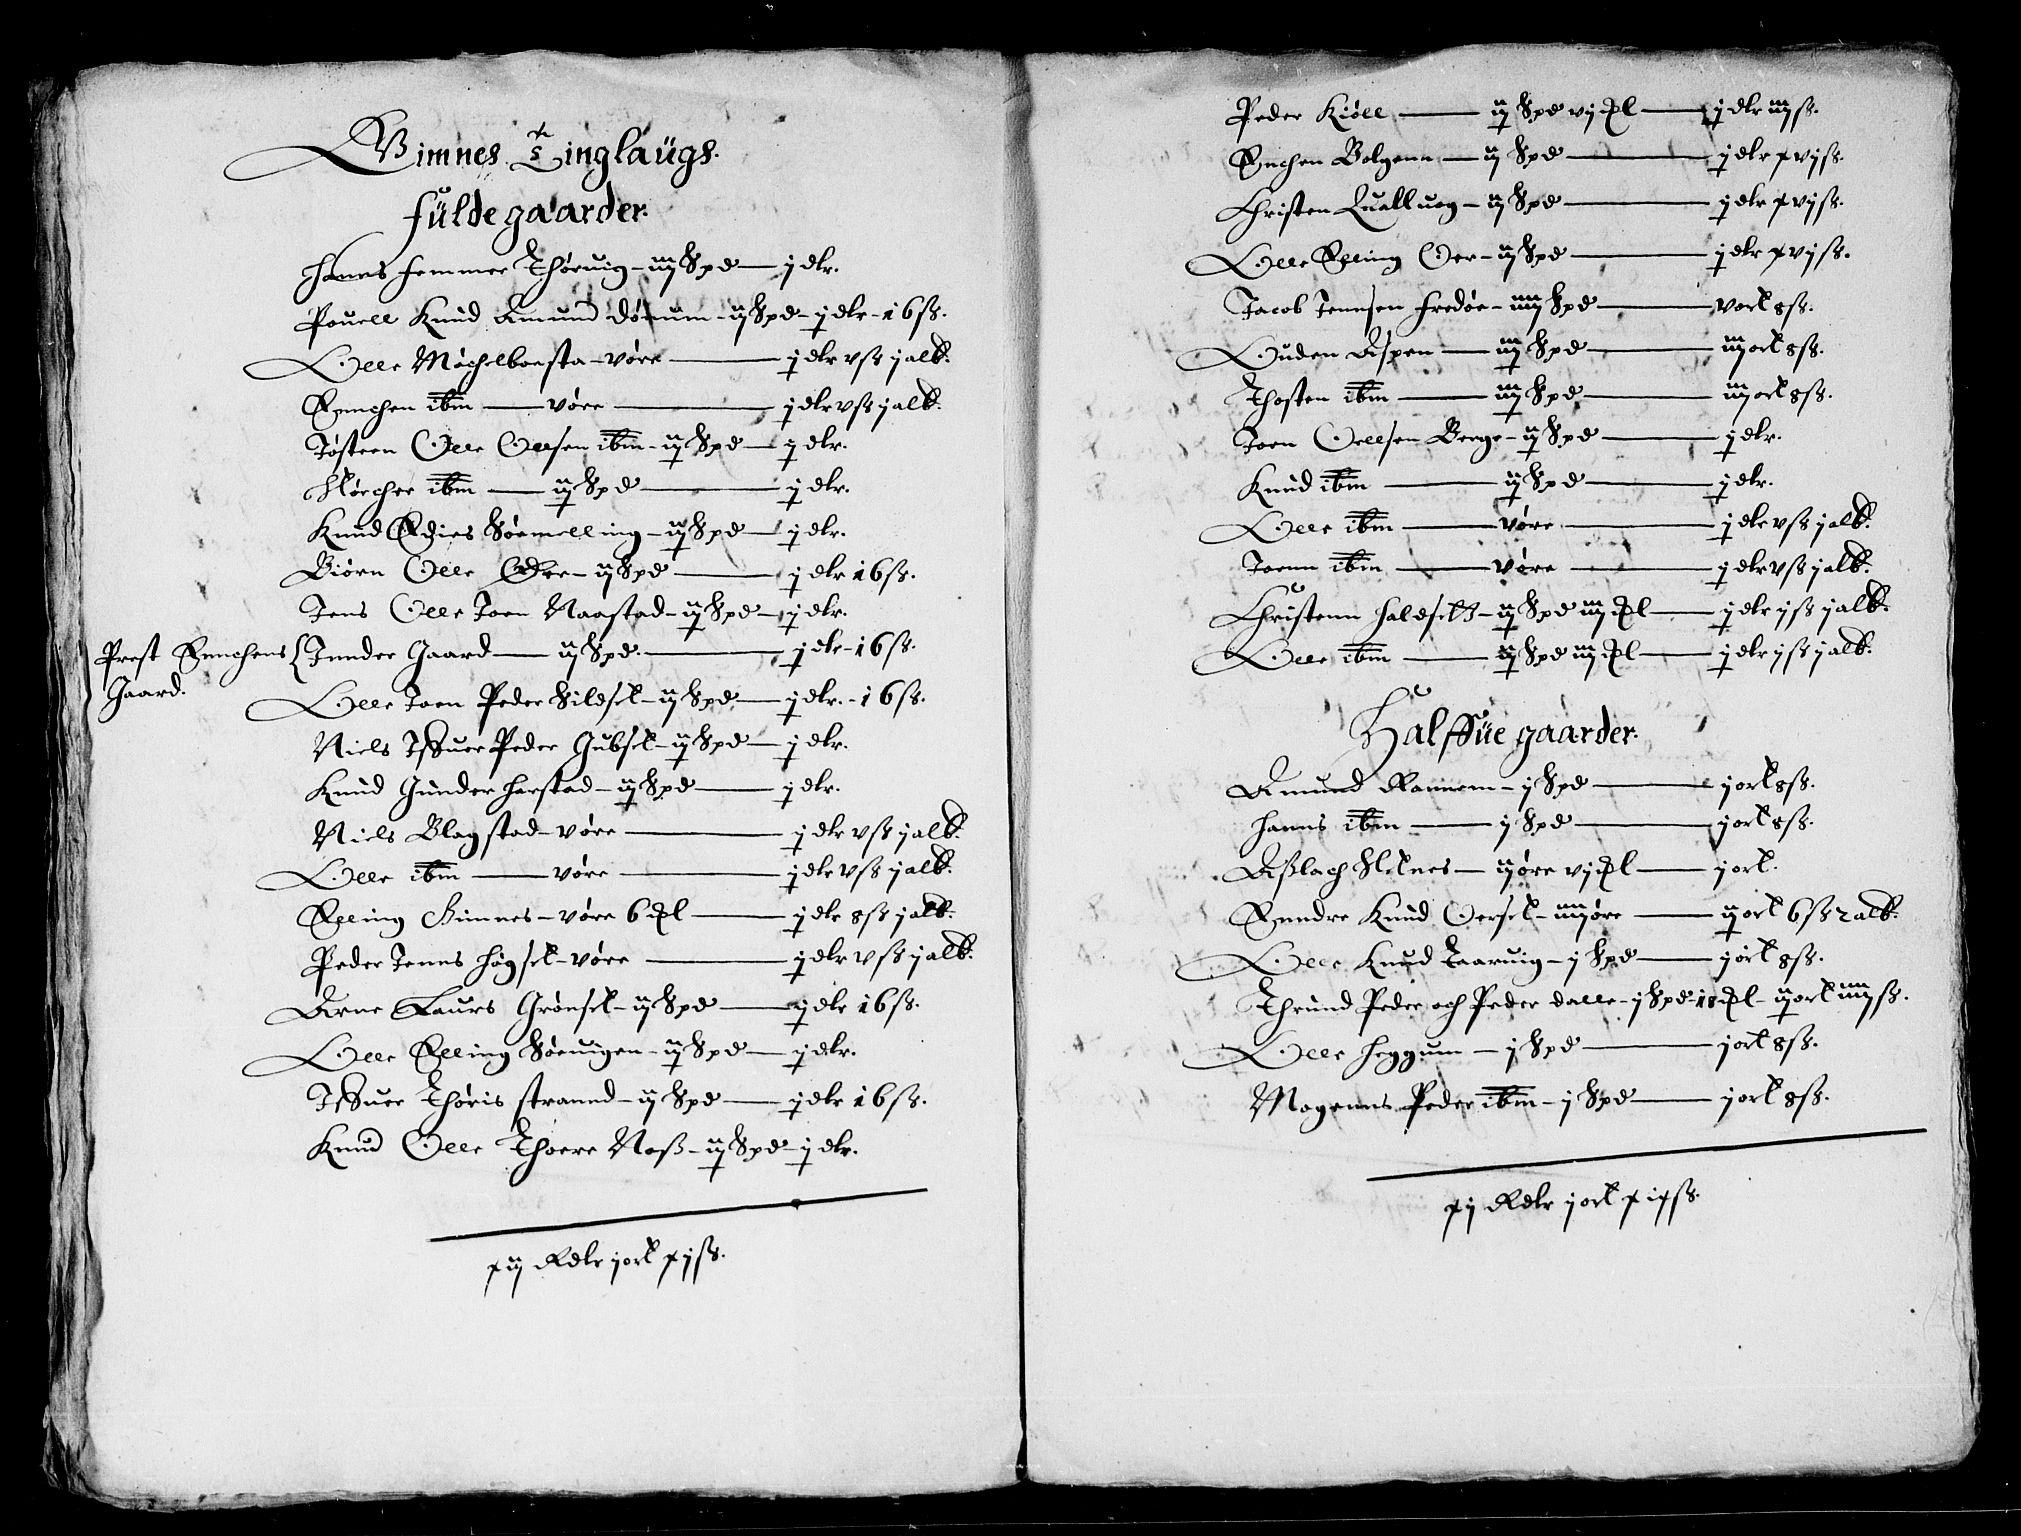 Gimnes Tinglaugs.
fülde gaarder.
Hanns Hemmer Thøruig – iij Spd – j dlr.
Pouell Knud Amund Dønum – ij Spd – j dlr – 16 ß.
Olle Møchelboesta – v øre – j dlr v ß j alb.
Erichen ibm – v øre – j dlr v ß j alb.
Tøsteen Olle Oelsen ibm – ij Spd – j dlr.
Størcher ibm – ij Spd – j dlr.
Knud Sømelling – ij Spd – j dlr.
Biørn Olle Øre – ij Spd – j dlr 16 ß.
Jens Olle Joen Naastad – ij Spd – j dlr.
Prest Erichens Gaard. { Inder Gaard – ij Spd. – j dlr – 16 ß.
Olle Joen Peder Sildset – ij Spd – j dlr. – 16 ß.
Niels Iffuer Peder Gubset – ij Spd – j dlr.
Knud Gunder Harstad – ij Spd – j dlr.
Niels Blagstad – v øre – j dlr v ß j alb.
Olle ibm – v øre – j dlr v ß j alb.
Elling Gimnes – v øre 6 pl – j dlr 8 ß j alb.
Peder Jenns Høgset – v øre – j dlr v ß j alb.
Arne Laurs Grønset – ij Spd – j dlr 16 ß.
Olle Elling Søeuigen – ij Spd – j dlr.
Iffuer Thøris strannd – ij Spd – j dlr 16 ß.
Knud Olle Thoere Noß – ij Spd – j dlr.
xij Rdlr j ort xj ß.
Peder Kiøll – ij Spd vj pl – j dlr iij ß.
Erichen Bolgenn – ij Spd – j dlr xvj ß.
Christen Qualluog – ij Spd – j dlr xvj ß.
Olle Elling Oer – ij Spd – j dlr xvj ß.
Jacob Jennsen Fredøe – iiij Spd – v ort 8 ß.
Ouden Aspen – iij Spd – iij ort 8 ß.
Thosten ibm – iij Spd – iij ort 8 ß.
Joen Oellsen Berge – ij Spd – j dlr.
Knud ibm – ij Spd – j dlr.
Olle ibm – v øre – j dlr v ß j alb.
Joenn ibm – v øre – j dlr v ß j alb.
Christenn Haldsett – ij Spd iij pl – j dlr j ß j alb.
Olle ibm – ij Spd iij pl – j dlr j ß j alb.
Halffüe gaarder.
Amund Rannem – j Spd – j ort 8 ß.
Hanns ibm – j Spd – j ort 8 ß.
Aßlach Fletnes – ij øre vj pl – j ort.
Endre Knud Oerset – iiij øre – ij ort 6 ß 2 alb.
Olle Knud Taaruig – j Spd – j ort 8 ß.
Thrund Peder och Peder Dalle – j Spd – 18 pl – ij ort iiij ß.
Olle Heggum – j Spd – j ort 8 ß.
Mogenns Peder ibm – j Spd – j ort 8 ß.
xj Rdlr j ort xixß.